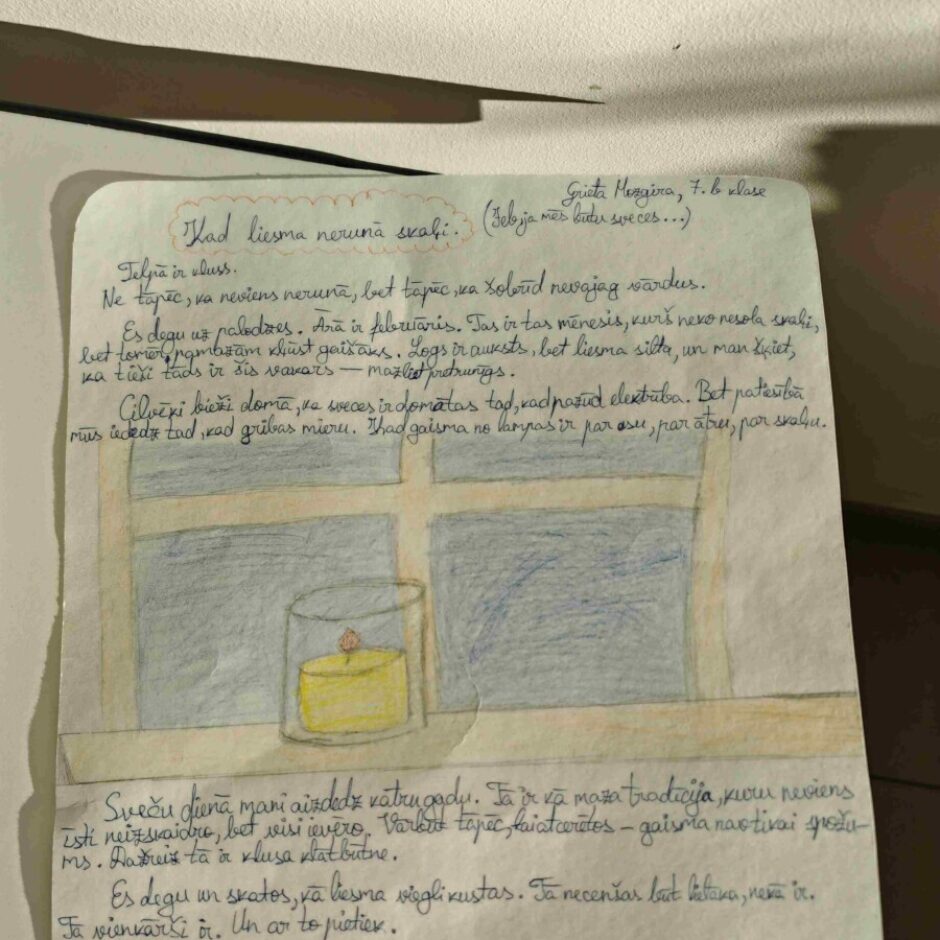 Grieta Mozgira, 7. b klase
Kad liesma nerunā skaļi.
(Jeb, ja mēs būtu sveces...)
Telpā ir kluss.
Ne tāpēc, ka neviens nerunā, bet tāpēc, ka šobrīd nevajag vārdus.
Es degu uz palodzes. Ārā ir februāris. Tas ir tas mēnesis, kurš neko nesola skaļi,
bet tomēr, pamazām kļūst gaišāks. Logs ir auksts, bet liesma silta, un man šķiet,
ka tieši tāds ir šis vakars — mazliet pretrunīgs.
Cilvēki bieži domā, ka sveces ir domātas tad, kad pazūd elektrība. Bet patiesībā
mūs iededz tad, kad gribas mieru. Kad gaisma no lampas ir par asu, par ātru, par skaļu.
Sveču dienā mani aizdedz katru gadu. Tā ir kā maza tradīcija, kuru neviens
īsti neizskaidro, bet visi ievēro. Varbūt tāpēc, lai atcerētos – gaisma nav tikai spožu-
ms. Dažreiz tā ir klusa klātbūtne.
Es degu un skatos, kā liesma viegli kustas. Tā necenšas būt lielāka, nekā ir.
Tā vienkārši ir. Un ar to pietiek.